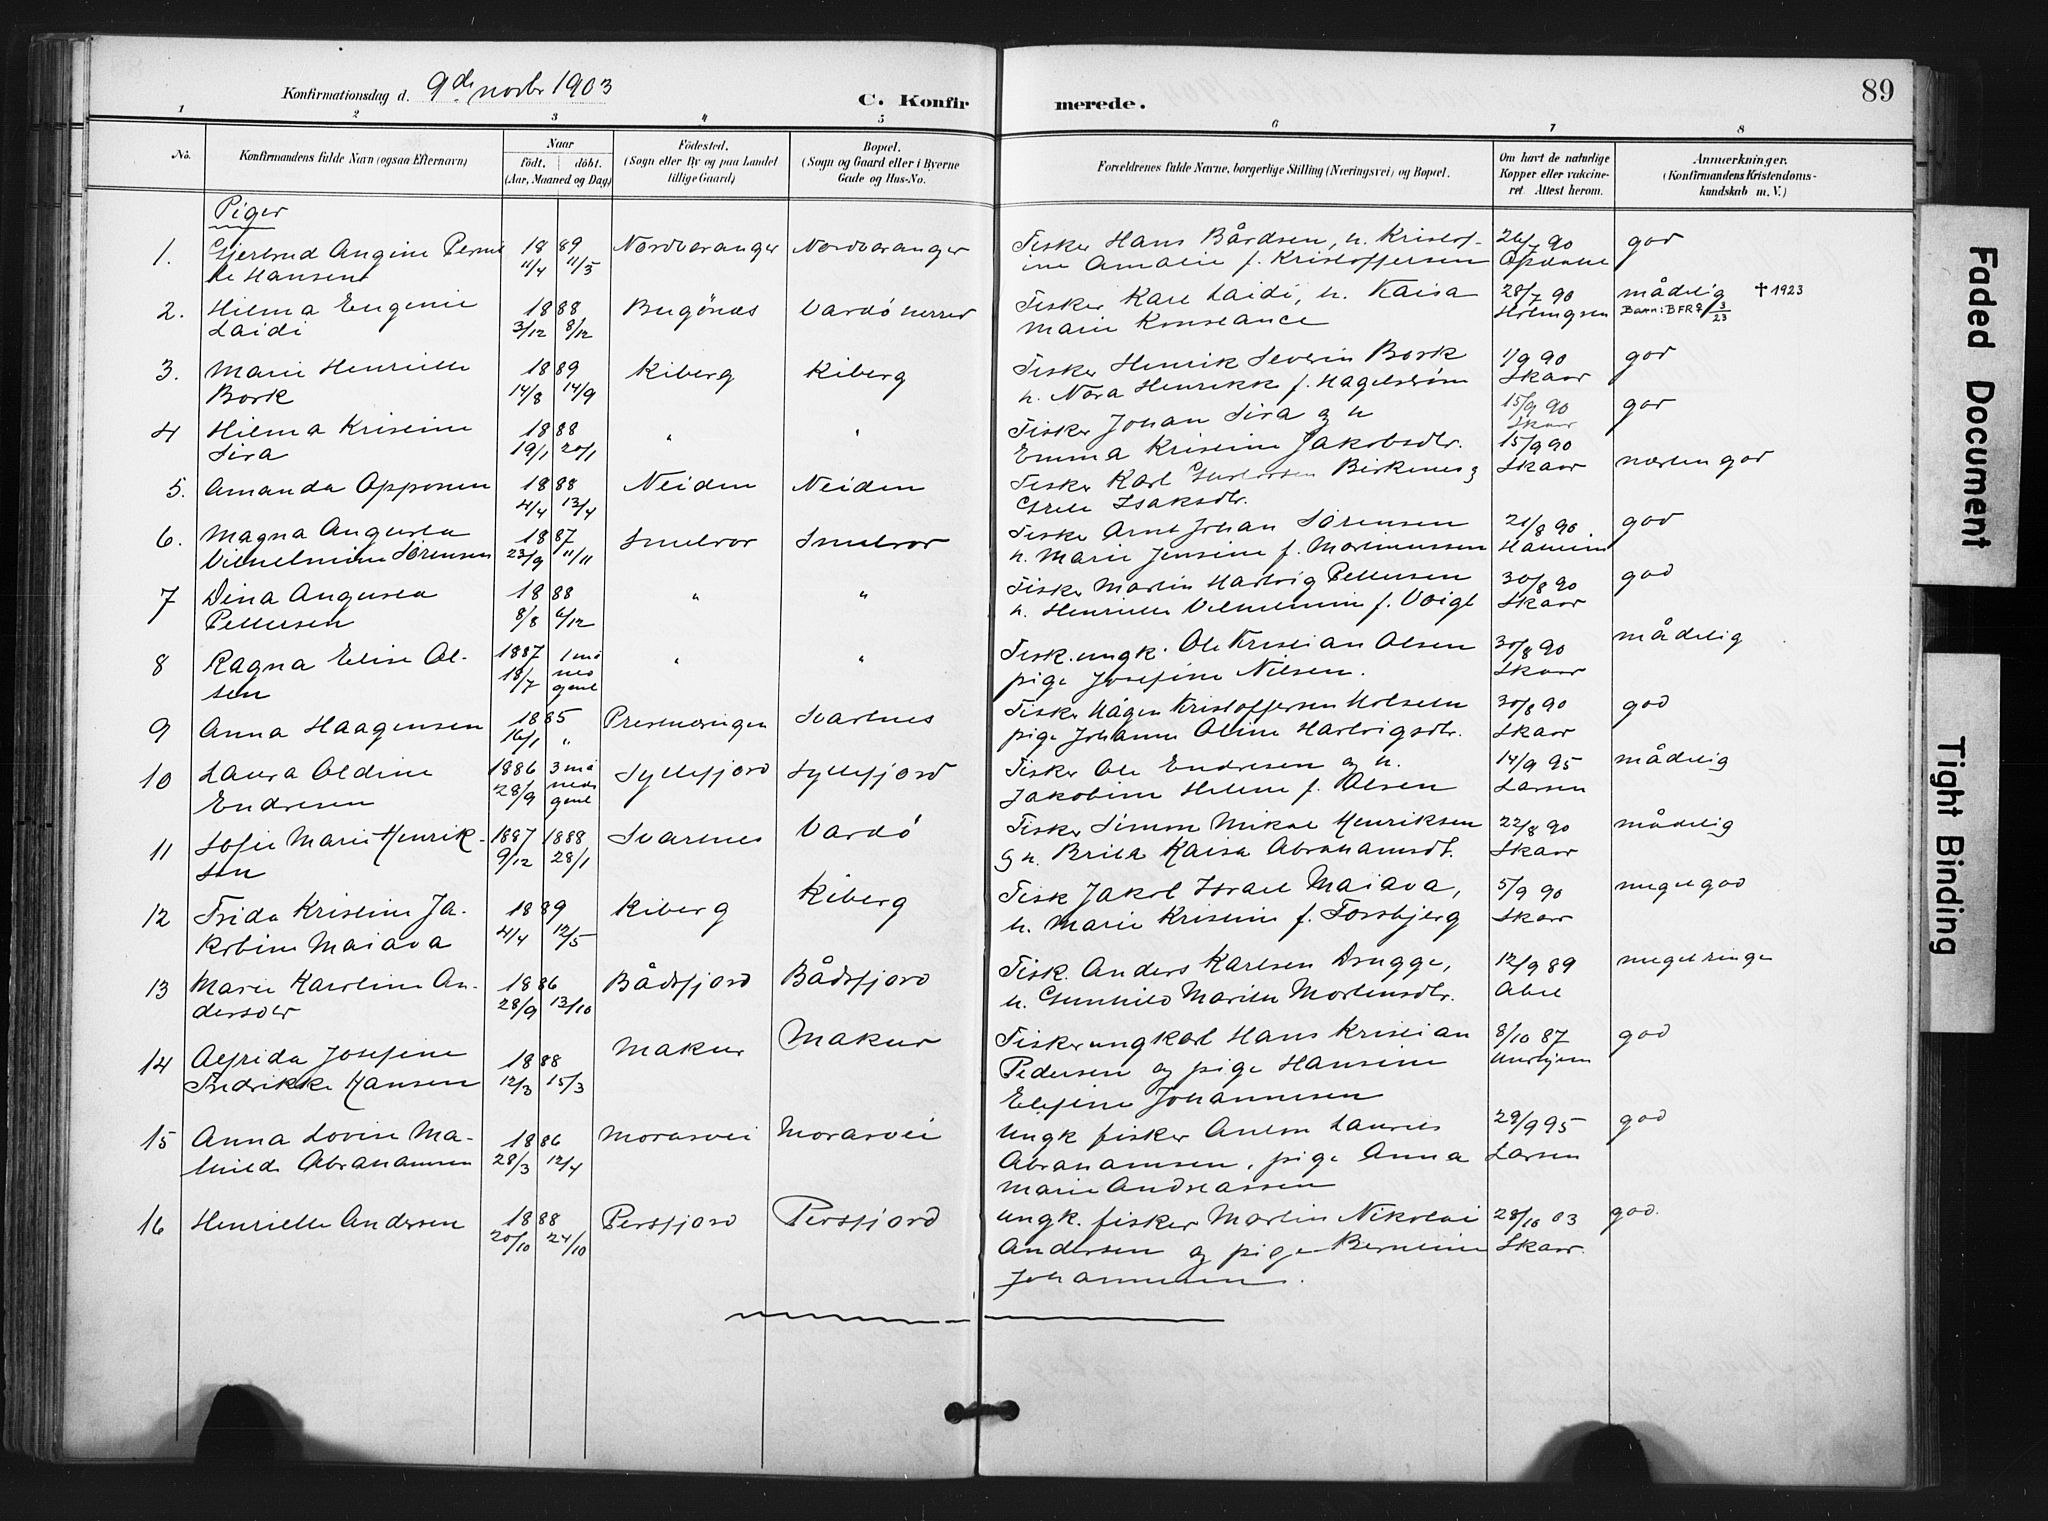 Konfirmationsdag d. 9de novbr 1903
C. Konfirmerede.
89
1 2 3 4 5 6 7 8
No.
Konfirmandens fulde Navn (ogsaa Efternavn)
Naar
født. døbt.
(Aar, Maaned og Dag)
Fødested.
(Sogn eller By og paa Landet
tillige Gaard)
Bopæl.
(Sogn og Gaard eller i Byerne
Gade og Hus-No.
Forældrenes fulde Navne, borgerlige Stilling (Næringsvei) og Bopæl.
Om havt de naturlige
Kopper eller vakcine-
ret. Attest herom.
Anmærkninger.
(Konfirmandens Kristendoms-
kundskab m. V.)
Piger
1. Gjertrud Angine Pernil 1889 Nordvaranger Nordvaranger Fisker Hans Bårdsen, h. Kristof- 26/7 90 god
le Hansen 11/4 11/5 ine Amalie f. Kristoffersen
2. Hilma Eugenie 1888 Bugönæs Vardö herred Fisker Karl Laidi, h. Kaisa 28/7 90 mådelig † 1923
Laidi 3/12 8/12 Marie Konstance Holmgren Barn: BFR 7/ 3/23
3. Marie Henriette 1889 Kiberg Kiberg Fisker Henrik Severin Bork 1/9 90 god
Bork 14/8 14/9 h. Nora Henrikke f. Hagelström Skaar
4 Hilma Kristine 1888 " " Fisker Johan Sira og h 15/9 90 god
Sira 19/1 20/1 Emma Kristine Jakobsdtr. Skaar
5. Amanda Opponen 1888 Neiden Neiden Fisker Karl Birkenes & 15/9 90 næsten god
4/4 13/4 Grete Isaksdtr. Skaar
6. Magna Augusta 1887 Smelror Smelror Fisker Arnt Johan Sörensen 21/8 90 god
Vilhelmine Sörensen 23/9 11/11 h. Marie Jensine f. Mortinussen
7 Dina Augusta 1888 " " Fisker Martin Hartvig Pettersen 30/8 90 god
Pettersen 8/8 6/12 h. Henriette Vilhelmine f. Voigt Skaar
8 Ragna Elise Ol- 1887 1 må " " Fisk. ungk. Ole Kristian Olsen 30/8 90 mådelig
sen 18/7 ned gml pige Josefine Nilsen. Skaar
9 Anna Haagensen 1885 Præstenæringen Svartnes Fisker Hågen Kristoffersen 30/8 90 god
16/1 " pige Johanne Oline Hartvigsdtr. Skaar
10 Laura Aldine 1886 3 må Syltefjord Syltefjord Fisker Ole Endresen og h. 14/9 95 mådelig
Endresen 28/9 neds gml Jakobine Helene f. Olsen Larsen
11 Sofie Marie Henrik- 1887 1888 Svartnes Vardö Fisker Simon Mikal Henriksen 22/8 90 mådelig
sen 9/12 28/1 & h. Brita Kaisa Abrahamsdt. Skaar
12 Frida Kristine Ja- 1889 Kiberg Kiberg Fisk Jakob Israel Maiava, 5/9 90 meget god
kobine Maiava 4/4 12/5 h. Marie Kristine f. Forsbjerg Skaar
13 Marie Karoline An- 1886 Bådsfjord Bådsfjord Fisk. Anders Karlsen Drugge, 12/9 89 meget ringe
dersdtr 28/9 13/10 h. Gunhild Marthe Mortensdtr. Abel
14 Alfrida Josefine 1888 Makur Makur Fisker ungkarl Hans Kristian 8/10 87 god
Fredrikke Hansen 12/3 15/3 Pedersen og pige Hansine
Elefine Johannesen
15 Anna Lovise Ma- 1886 Morasvei Morasvei Ungk fisker Anton Laurits 29/9 95 god
thilde Abrahamsen 28/3 12/4 Abrahamsen, pige Anna Larsen
Marie Andreassen
16 Henriette Andersen 1888 Persfjord Persfjord Ungk. fisker Martin Nikolai 28/10 03 god.
20/10 24/10 Andersen og pige Berntine Skaar
Johannesen.
Faded Document
Tight Binding